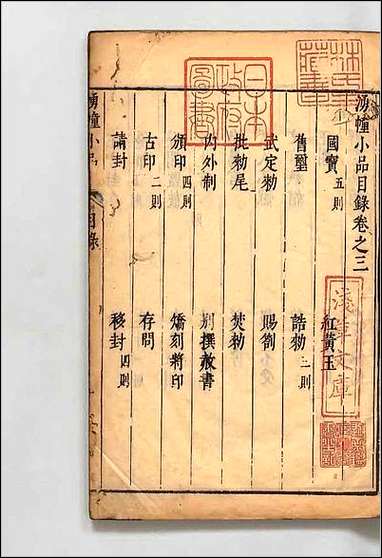 湧幢小品目錄卷之三
國寶 五則
紅黃玉
舊璽
誥勑 二則
武定勑
賜劄
批勑尾
焚勑
內外制
別撰赦書
頒印 四則
矯刻將印
古印 二則
存問
請封
移封 四則
湧幢小品
目錄
日本
政府
圖書
林氏
藏書
淺草文庫